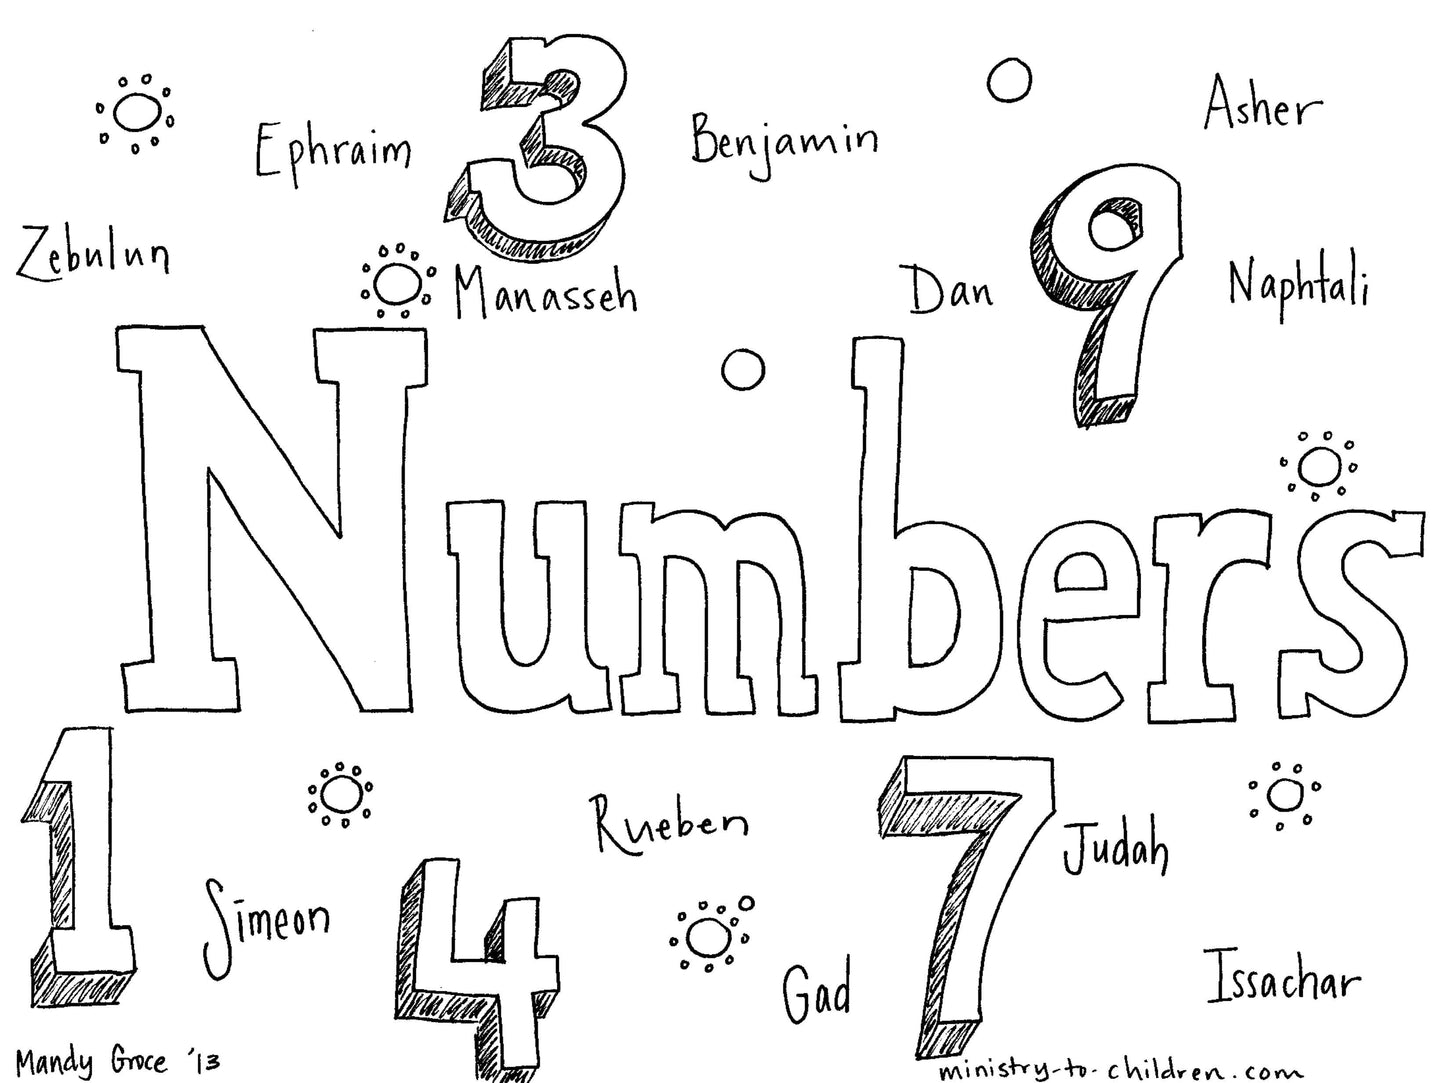 3
Asher
Ephraim
Benjamin
9
Zebulun
Manasseh
Dan
Naphtali
Numbers
1
7
Rueben
Judah
4
Simeon
Gad
Issachar
Mandy Groce '13
ministry-to-children.com